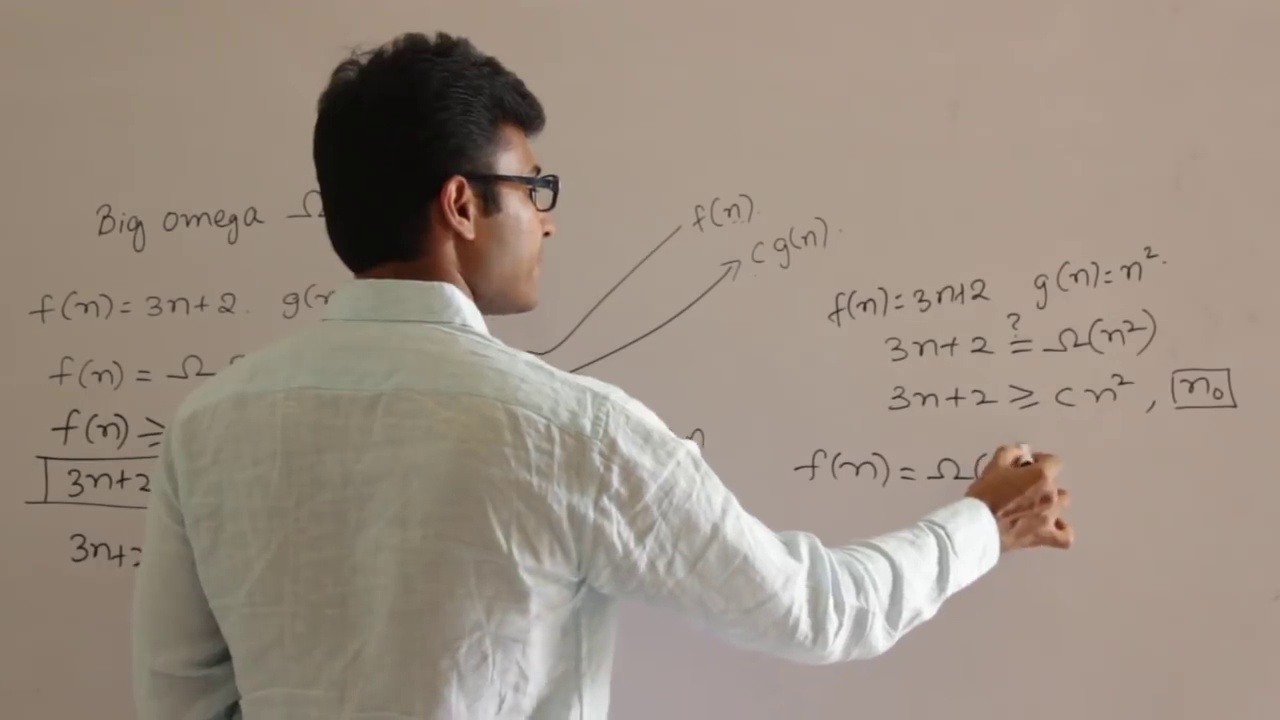 Big omega Ω
f(n) = 3n+2. g(n
f(n) = Ω
f(n) ≥
3n+2
3n+2
f(n).
c g(n).
n
f(n) = 3n+2 g(n) = n².
3n+2 ≟ Ω(n²)
3n+2 ≥ c n² , n₀
f(n) = Ω(